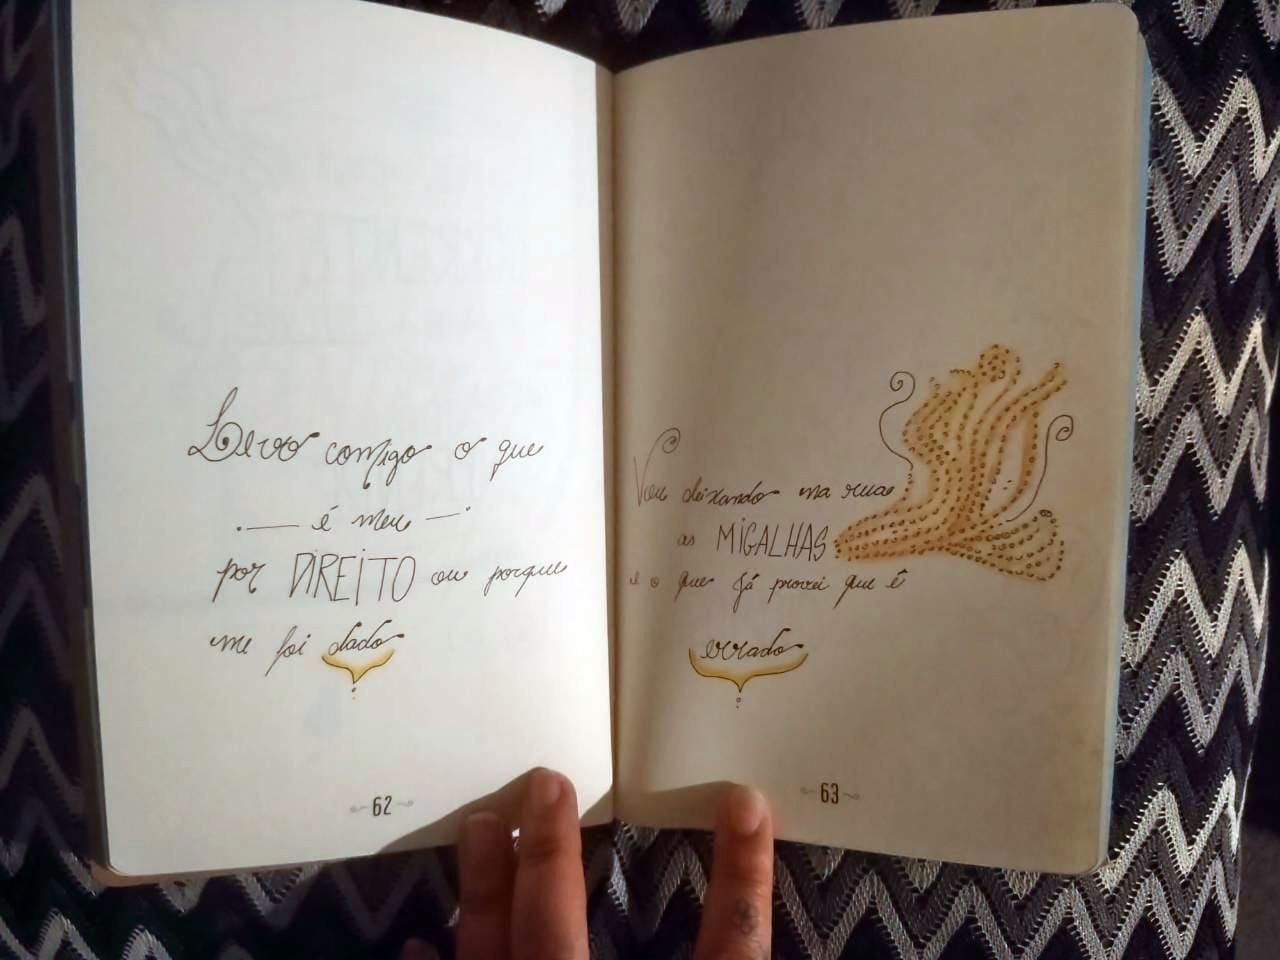 Levo comigo o que
é meu
por DIREITO ou porque
me foi dado
62
Vou deixando na rua
as MIGALHAS
e o que já provei que é
errado
63